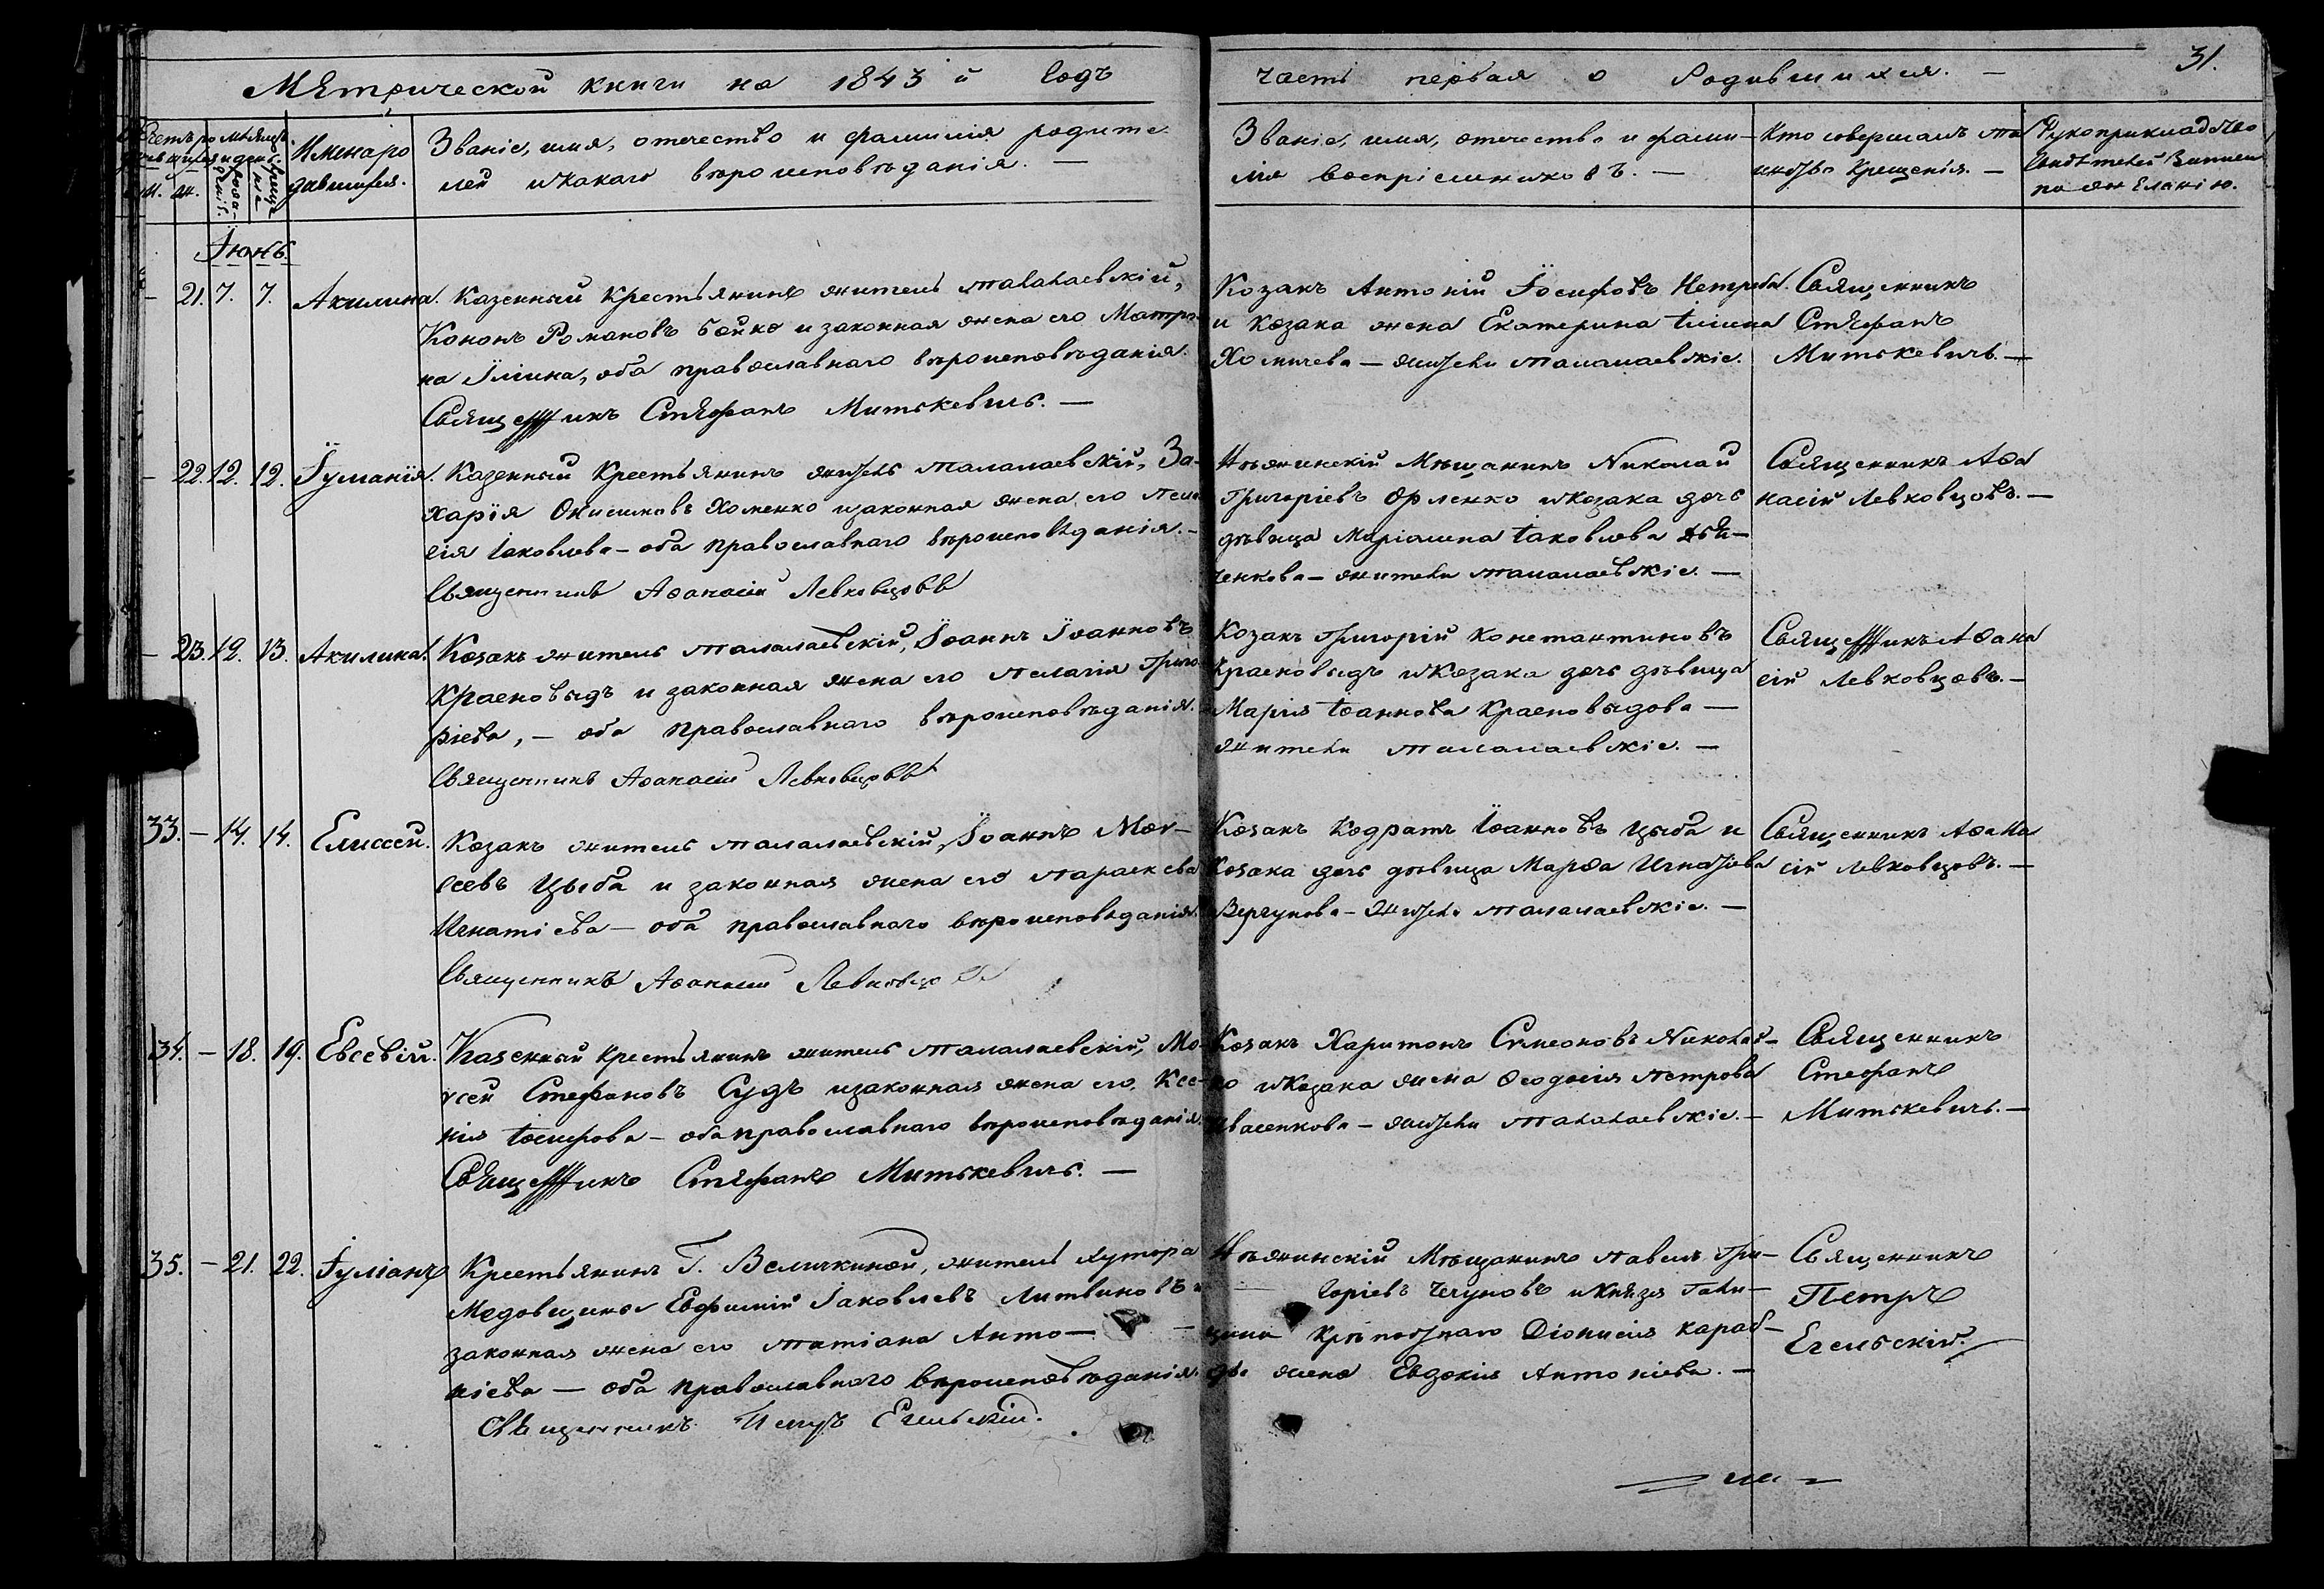 Метрической книги на 1843й Годъ
часть первая о Родившихся. —
31.
Счетъ родившихся
Мѣсяцъ и день
рожденія
крещенія
м. ж.
Имена родившихся.
Званіе, имя, отечество и фамилія родите-
лей и какаго вѣроисповѣданія. —
Званіе, имя, отечество и фами-
лія воспріемниковъ. —
Кто совершалъ та
инство Крещенія. —
Рукоприкладство
свидѣтелей записи
по желанію.
Іюнь.
— 21. 7. 7. Акилина.
Казенный Крестьянинъ житель талалаевскій,
Кононъ Романовъ Бойко и законная жена его Матро-
на Ілiина, оба православнаго вѣроисповѣданія.
Священникъ Стефанъ Митькевичъ. —
Козакъ Антоній Іосифовъ Нетреба
и козака жена Екатерина
Хомичева — жители талалаевскіе.
Священникъ
Стефанъ
Митькевичъ. —
— 22. 12. 12. Іуліанія.
Казенный Крестьянинъ житель талалаевскій, За-
харія Онисимовъ Хоменко и законная жена его Пела
гія Іаковлева — оба православнаго вѣроисповѣданія. —
Священникъ Аѳанасій Левковцовъ
Нѣжинскій Мѣщанинъ Николай
Григоріевъ Орленко и козака дочь
дѣвица Маріамна Іаковлева
ченкова — жители талалаевскіе. —
Священникъ Аѳа
насій Левковцовъ. —
— 23. 12. 13. Акилина.
Козакъ житель талалаевскій, Іоаннъ Іоанновъ
Красновыдъ и законная жена его Пелагія Григо
ріева, — оба православнаго вѣроисповѣданія.
Священникъ Аѳанасій Левковцовъ
Козакъ Григорій Константиновъ
Красновыдъ и козака дочь дѣвица
Марія Іоаннова Красновыдова —
жители талалаевскіе. —
Священникъ Аѳана
сій Левковцовъ. —
33. — 14. 14. Елиссей.
Козакъ житель талалаевскій, Іоаннъ Мои-
сеевъ Цыба и законная жена его Параскева
Игнатіева — оба православнаго вѣроисповѣданія.
Священникъ Аѳанасій Левковцовъ
Козакъ Кодратъ Іоанновъ Цыба и
Козака дочь дѣвица Марѳа Игнатіева
Вергунова — жители талалаевскіе. —
Священникъ Аѳана
сій Левковцовъ. —
34. — 18. 19. Евсевій.
Казенный крестьянинъ житель талалаевскій, Мо-
исей Стефановъ Судъ и законная жена его Ксе-
нія Іосифова — оба православнаго вѣроисповѣданія.
Священникъ Стефанъ Митькевичъ. —
Козакъ Харитонъ Симеоновъ Николай-
ко и козака жена Ѳеодосія Петрова
Ивасенкова — жители талалаевскіе. —
Священникъ
Стефанъ
Митькевичъ. —
35. — 21. 22. Іуліанъ
Крестьянинъ Г. Величкиной, житель хутора
Медовщина Евфимій Іаковлевъ Литвиновъ и
законная жена его татіана Анто—
ніева — оба православнаго вѣроисповѣданія.
Священникъ Петръ Егельскій.
Нѣжинскій Мѣщанинъ Павелъ Гри-
горіевъ Чегуновъ и Князя Гали-
цына Крѣпостнаго Діонисія Караб-
жена Евдокія Антоніева. —
Священникъ
Петръ
Егельскій.